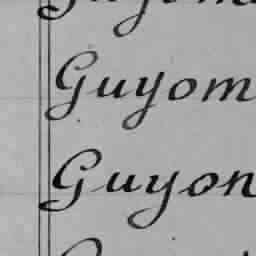 Guyom
Guyon